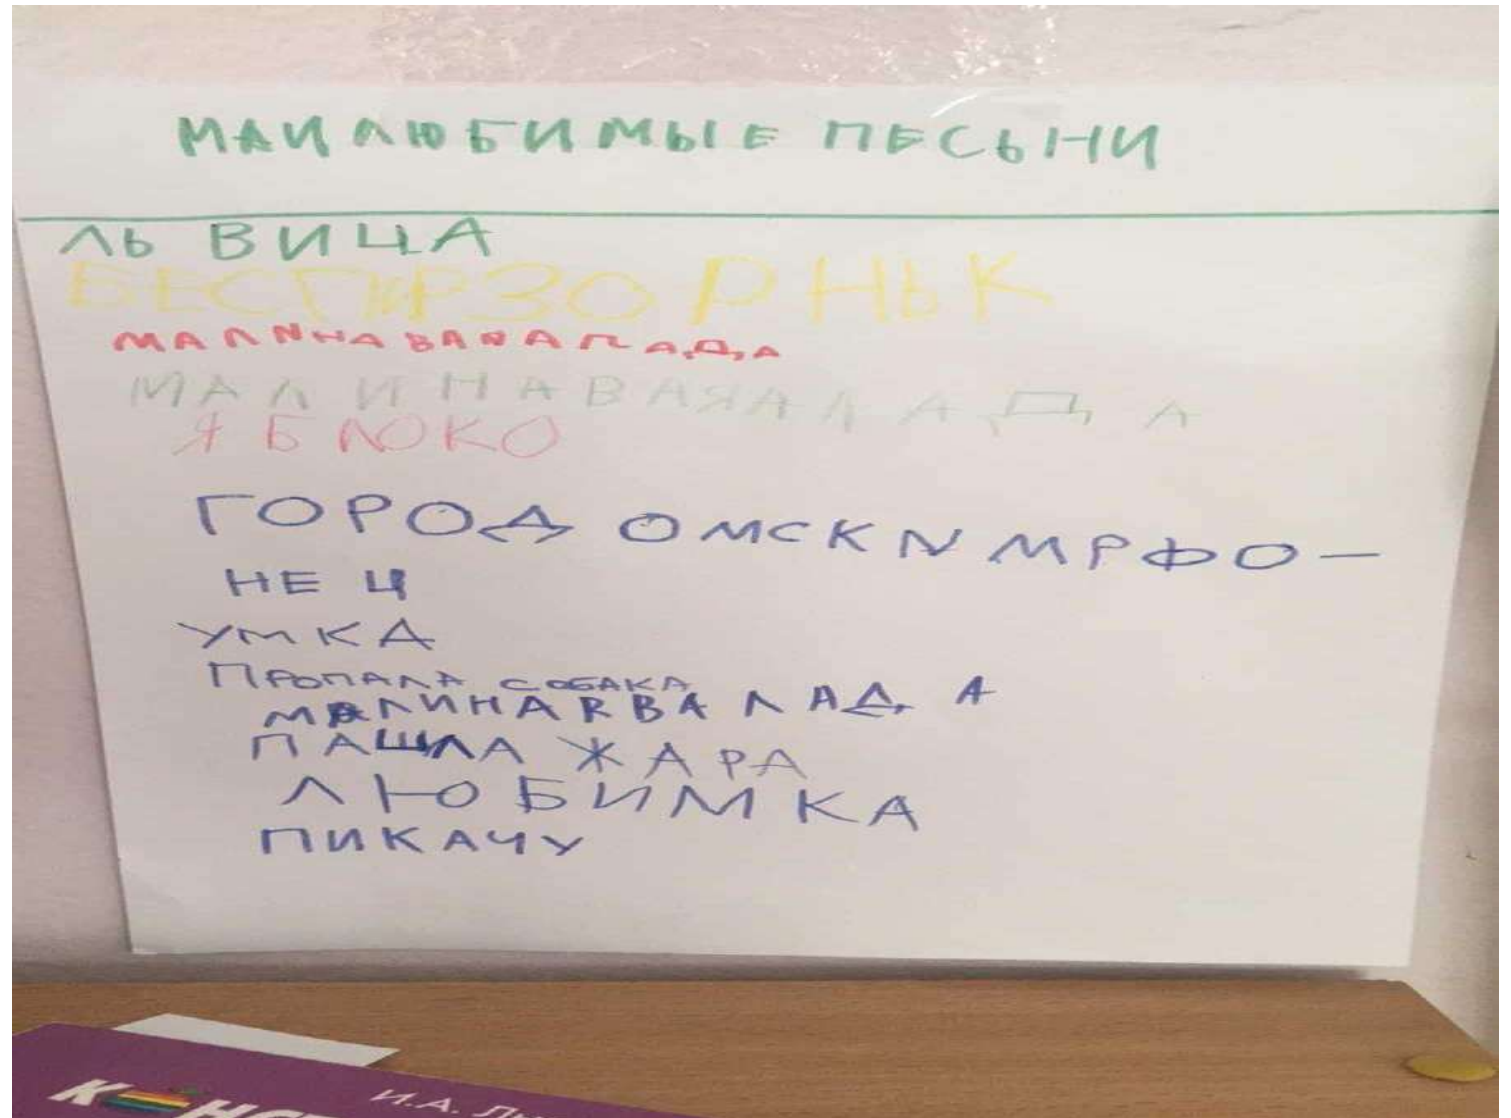 МАИ ЛЮБИМЫЕ ПЕСЬНИ
ЛЬВИЦА
БЕСПИРЗОРНЬК
МАЛИНАВАЯ ЛАДА
МАЛИНАВАЯ ЛАДА
ЯБЛОКО
ГОРОД ОМСК И МРФО-
НЕЦ
УМКА
ПРОПАЛА СОБАКА
ЛАДА
ПАШЛА ЖАРА
ЛЮБИМКА
ПИКАЧУ
И.А.